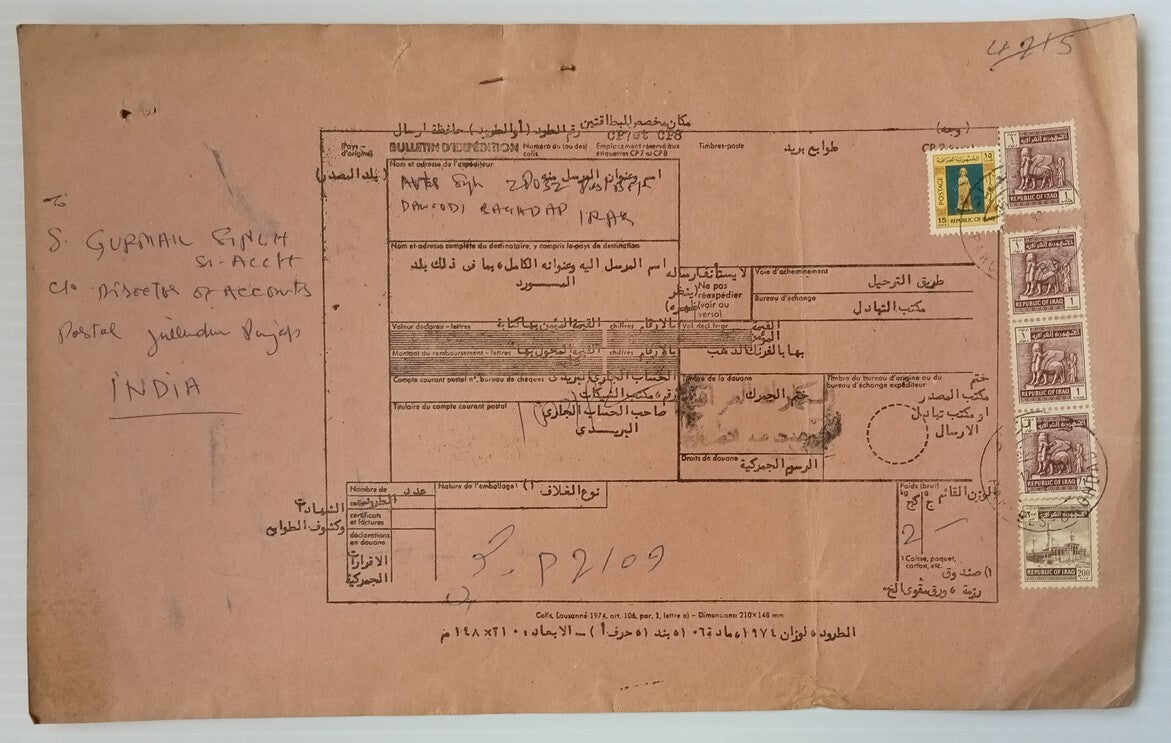 4215
مكان مخصص للبطاقتين رقم الطرود (أو الطرود) حافظة ارسال
CP7 et CP8
(وجه)
(Pays d'origine)
BULLETIN D'EXPÉDITION
Numéro du (ou des) colis
Emplacement réservé aux étiquettes CP7 et CP8
Timbres-poste
طوابع بريد
CP 2
(بلد المصدر)
Nom et adresse de l'expéditeur
اسم وعنوان المرسل منه
DAWOODI BAGHDAD IRAQ
To
S. GURMAIL SINGH
Sr-Acctt
C/o Director of Accounts
Postal Jullundur Punjab
INDIA
Nom et adresse complète du destinataire, y compris le pays de destination
اسم المرسل اليه وعنوانه الكامل بما فى ذلك بلد
المــورد
لا يستأنف ارساله
(ينظر
ظهره)
Ne pas réexpédier (voir au verso)
Voie d'acheminement
طريق الترحيل
Bureau d'échange
مكتب التبادل
Valeur déclarée – lettres
القيمة المؤمن بها كتابة
chiffres
بالارقام
Val. décl. fr-or
القيمة
المؤمن
بها بالفرنك الذهب
Montant du remboursement – lettres
chiffres
بالارقام
Compte courant postal n°, bureau de chèques
الحساب الجارى البريدى
رقم مكتب الشيكات
Titulaire du compte courant postal
صاحب الحساب الجارى
البريــدى
Timbre de la douane
ختم الجمرك
Droits de douane
الرسوم الجمركية
Timbre du bureau d'origine ou du bureau d'échange expéditeur
ختم
مكتب المصدر
او مكتب تبادل
الارسال
Nombre de
عدد
colis
الطرود
certificats et factures
الشهادات
وكشوف الطوابع
déclarations en douane
الاقرارات
الجمركية
Nature de l'emballage 1)
نوع الغلاف
Poids (brut)
kg
g
كج
ج
الوزن القائم
2 –
P 2109
1 Caisse, paquet, carton, etc.
١) صندوق
رزمة ، ورق مقوى الخ
Colis, Lausanne 1974, art. 106, par. 1, lettre a) – Dimensions: 210×148 mm
الطرود ، لوزان ١٩٧٤ ، مادة ١٠٦ ، بند ١ ، حرف أ) – الابعاد : ٢١٠×١٤٨ م
POSTAGE
15
١٥
REPUBLIC OF IRAQ
الجمهورية العراقية
REPUBLIC OF IRAQ
1
الجمهورية العراقية
REPUBLIC OF IRAQ
1
الجمهورية العراقية
REPUBLIC OF IRAQ
1
الجمهورية العراقية
REPUBLIC OF IRAQ
الجمهورية العراقية
REPUBLIC OF IRAQ
200
BAGHDAD